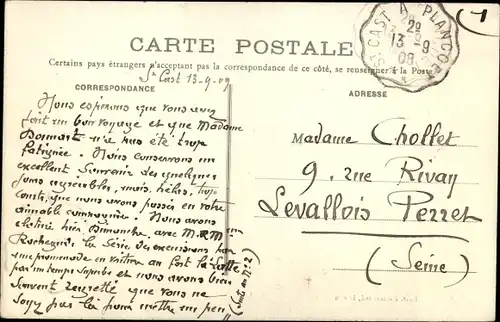 ST CAST A PLANCOET
2E
13-9
08
CARTE POSTALE
Certains pays étrangers n'acceptant pas la correspondance de ce côté, se renseigner à la Poste
St Cast 13-9-09
CORRESPONDANCE
ADRESSE
Nous espérons que vous avez
fait un bon voyage et que Madame
n'a pas été trop
fatiguée. Nous conservons un
excellent souvenir des quelques
jours agréables, mais, hélas, trop
courts, que nous avons passés en votre
aimable compagnie. Nous avons
clôturé hier Dimanche, avec M. & Mme
la série des excursions par
une promenade en voiture au fort la Latte
par un temps superbe et nous avons bien
souvent regretté que vous ne
soyez pas là pour mettre un peu
(Suite au No 2)
Madame Chollet
9, rue Rivay
Levallois Perret
(Seine)